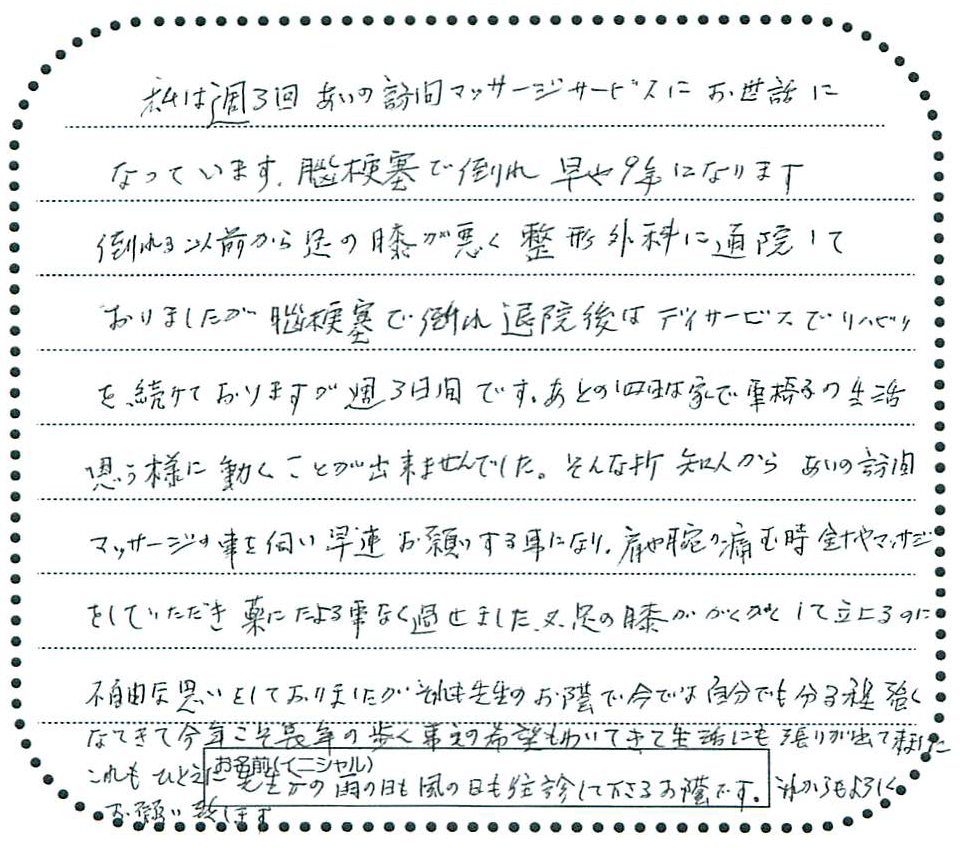 私は週3回 あいの訪問マッサージサービスに お世話に
なっています。脳梗塞で倒れ 早や9年になります
倒れる以前から足の膝が悪く 整形外科に通院して
おりましたが 脳梗塞で倒れ 退院後は デイサービスでリハビリ
を続けておりますが 週3日間です。あとの四日は家で車椅子の生活
思う様に動くことが出来ませんでした。そんな折 知人から あいの訪問
マッサージの事を伺い 早速 お願いする事になり、肩や腕の痛む時 針やマッサージ
をしていただき 薬にたよる事なく過せました。又 足の膝ががくがくして立上るのに
不自由な思いをしておりましたが それも先生のお陰で今では自分でも分る程 強く
なてきて今年こそ長年の歩く事えの希望もわいてきて生活にも張りが出て来ました
お名前(イニシャル)
これも ひとえに 先生方の雨の日も風の日も往診して下さるお陰です。これからもよろしく
お願い致します